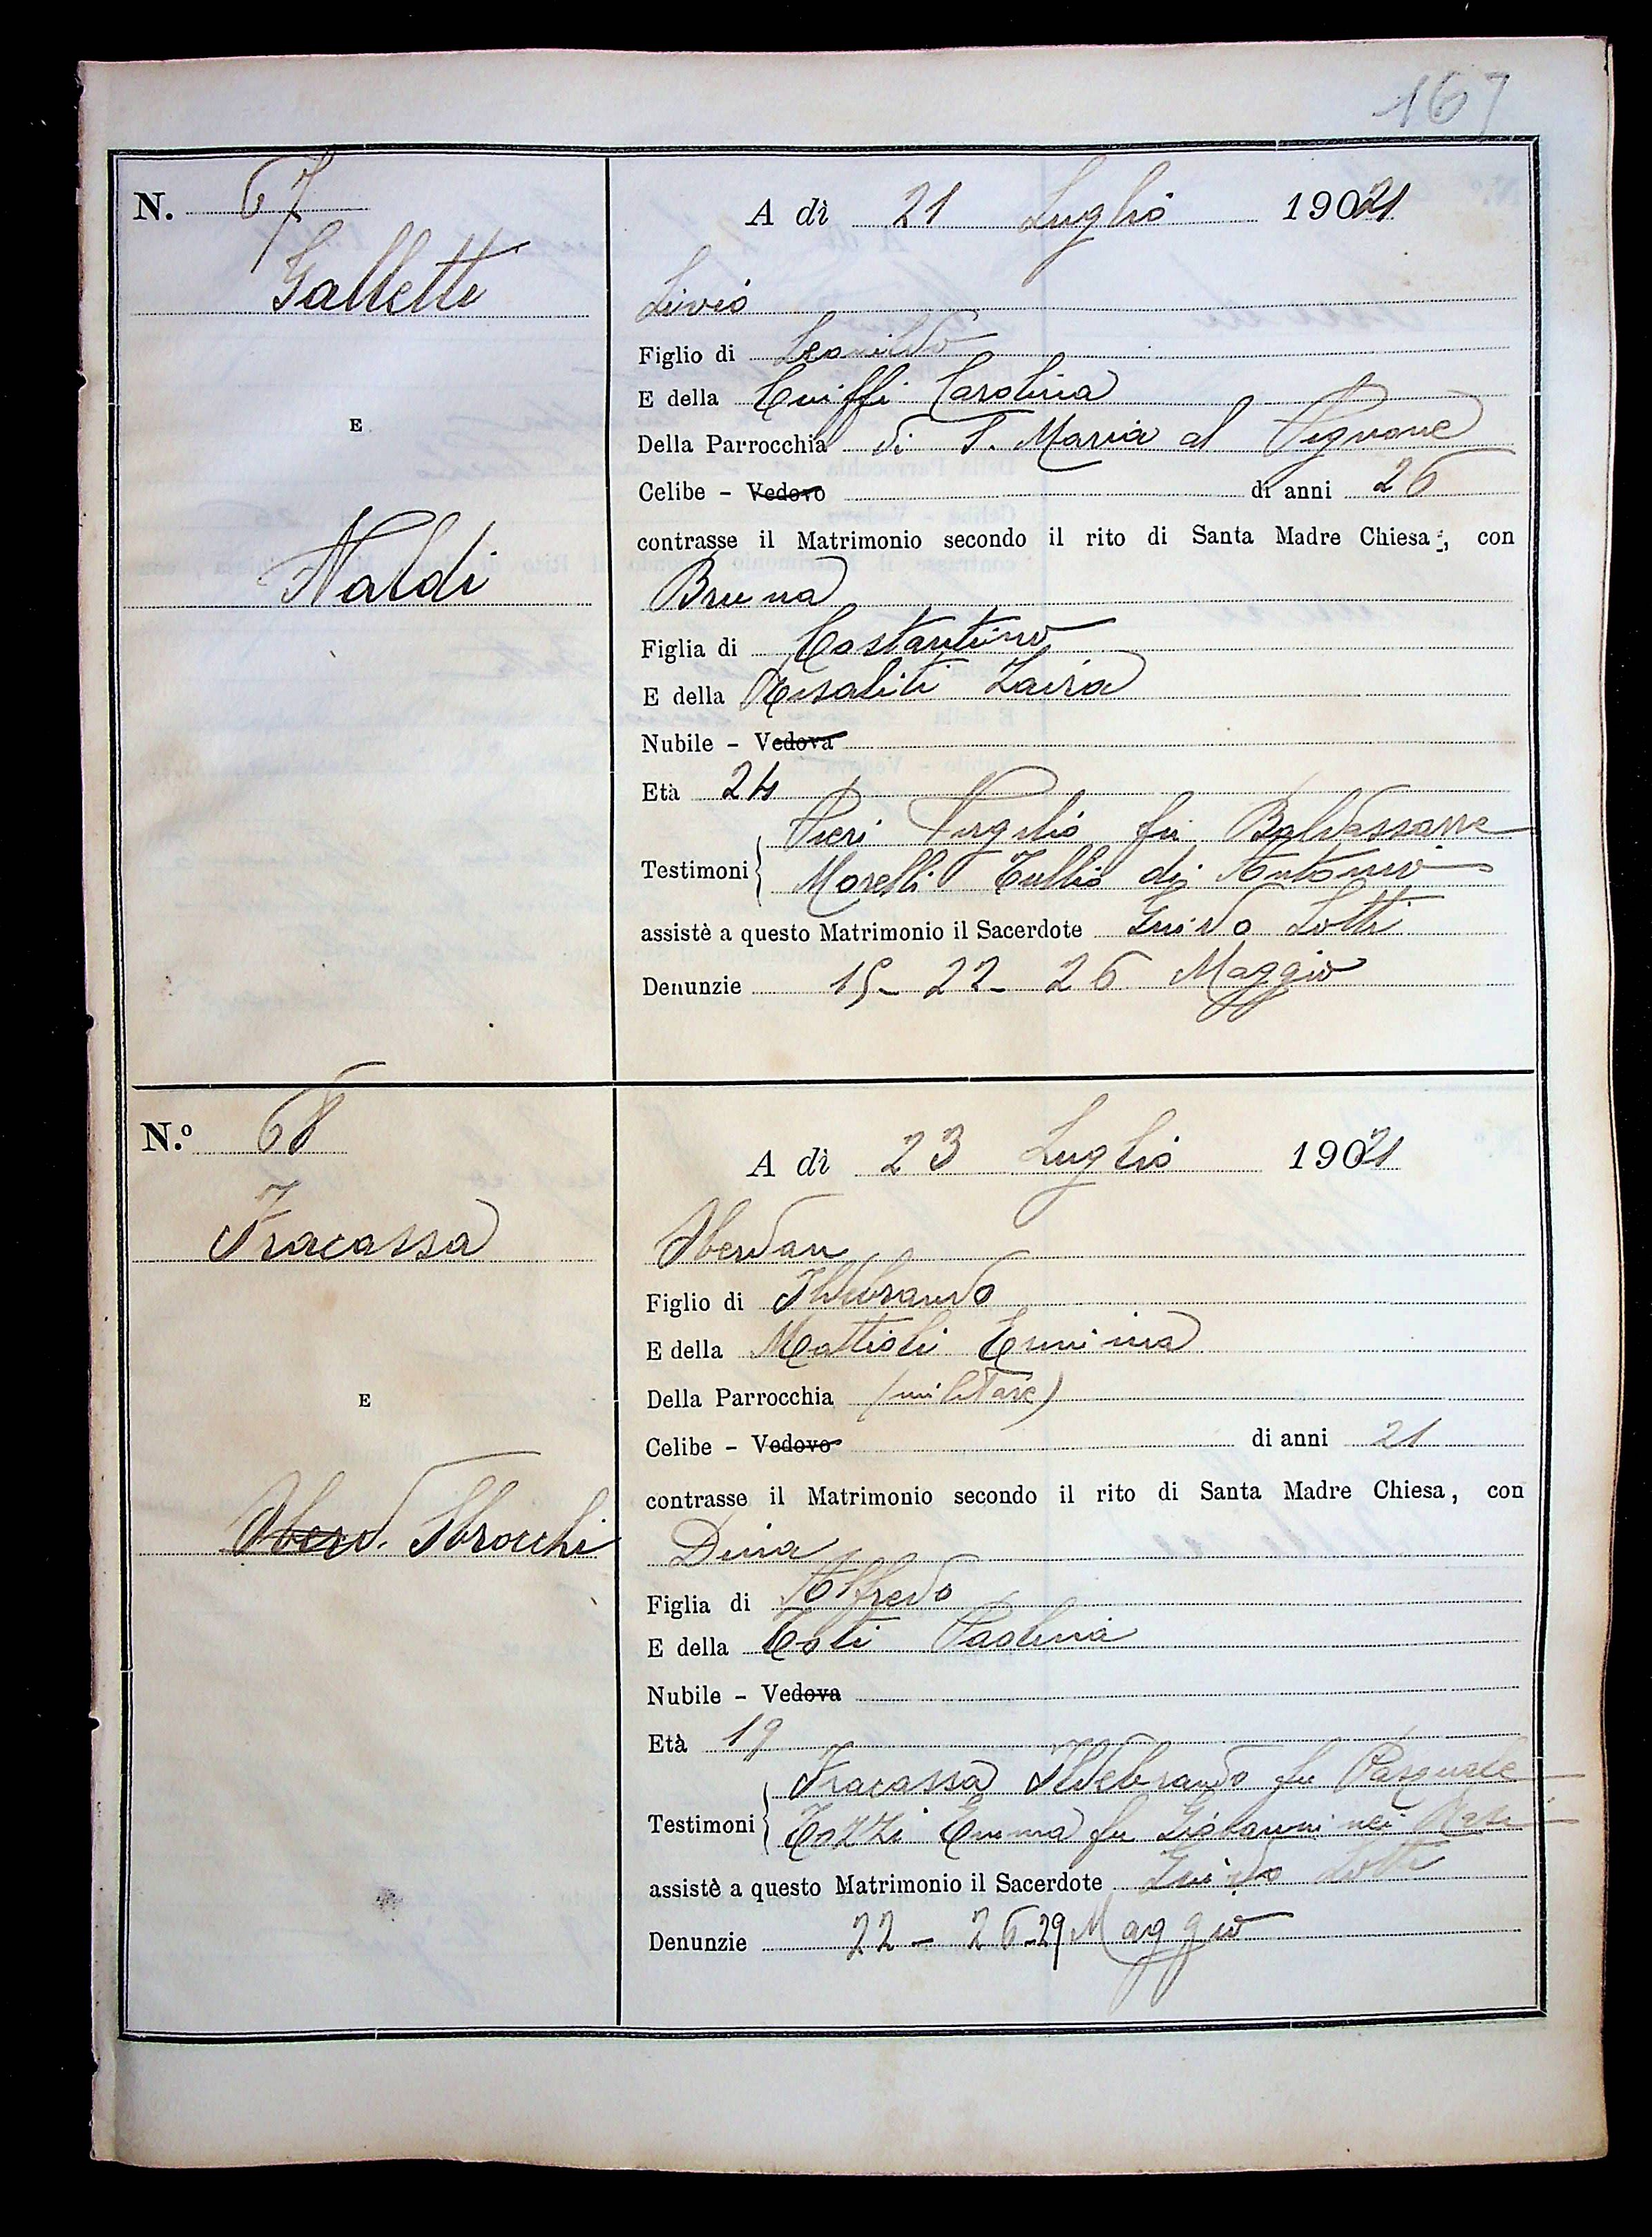 167
N. 67
A dì 21 Luglio 1921
Galletti
Livio
Figlio di Leonildo
E della Ciuffi Carolina
E
Della Parrocchia di S. Maria al Pignone
Celibe - Vedovo di anni 26
contrasse il Matrimonio secondo il rito di Santa Madre Chiesa, con
Naldi
Bruna
Figlia di Costantino
E della Risaliti Zaira
Nubile - Vedova
Età 24
Testimoni Pieri Virgilio fu Baldassarre
Morelli Tullio di Antonio
assistè a questo Matrimonio il Sacerdote Guido Lotti
Denunzie 15 - 22 - 26 Maggio
N.º 68
A dì 23 Luglio 1921
Fracassa
Oberdan
Figlio di Ildebrando
E della Mattioli Erminia
E
Della Parrocchia (militare)
Celibe - Vedovo di anni 21
contrasse il Matrimonio secondo il rito di Santa Madre Chiesa, con
Oberd. Sbrocchi
Dina
Figlia di Alfredo
E della Coti Paolina
Nubile - Vedova
Età 19
Testimoni Fracassa Ildebrando fu Pasquale
Tozzi Emma fu Giovanni nei
assistè a questo Matrimonio il Sacerdote Guido Lotti
Denunzie 22 - 26 - 29 Maggio